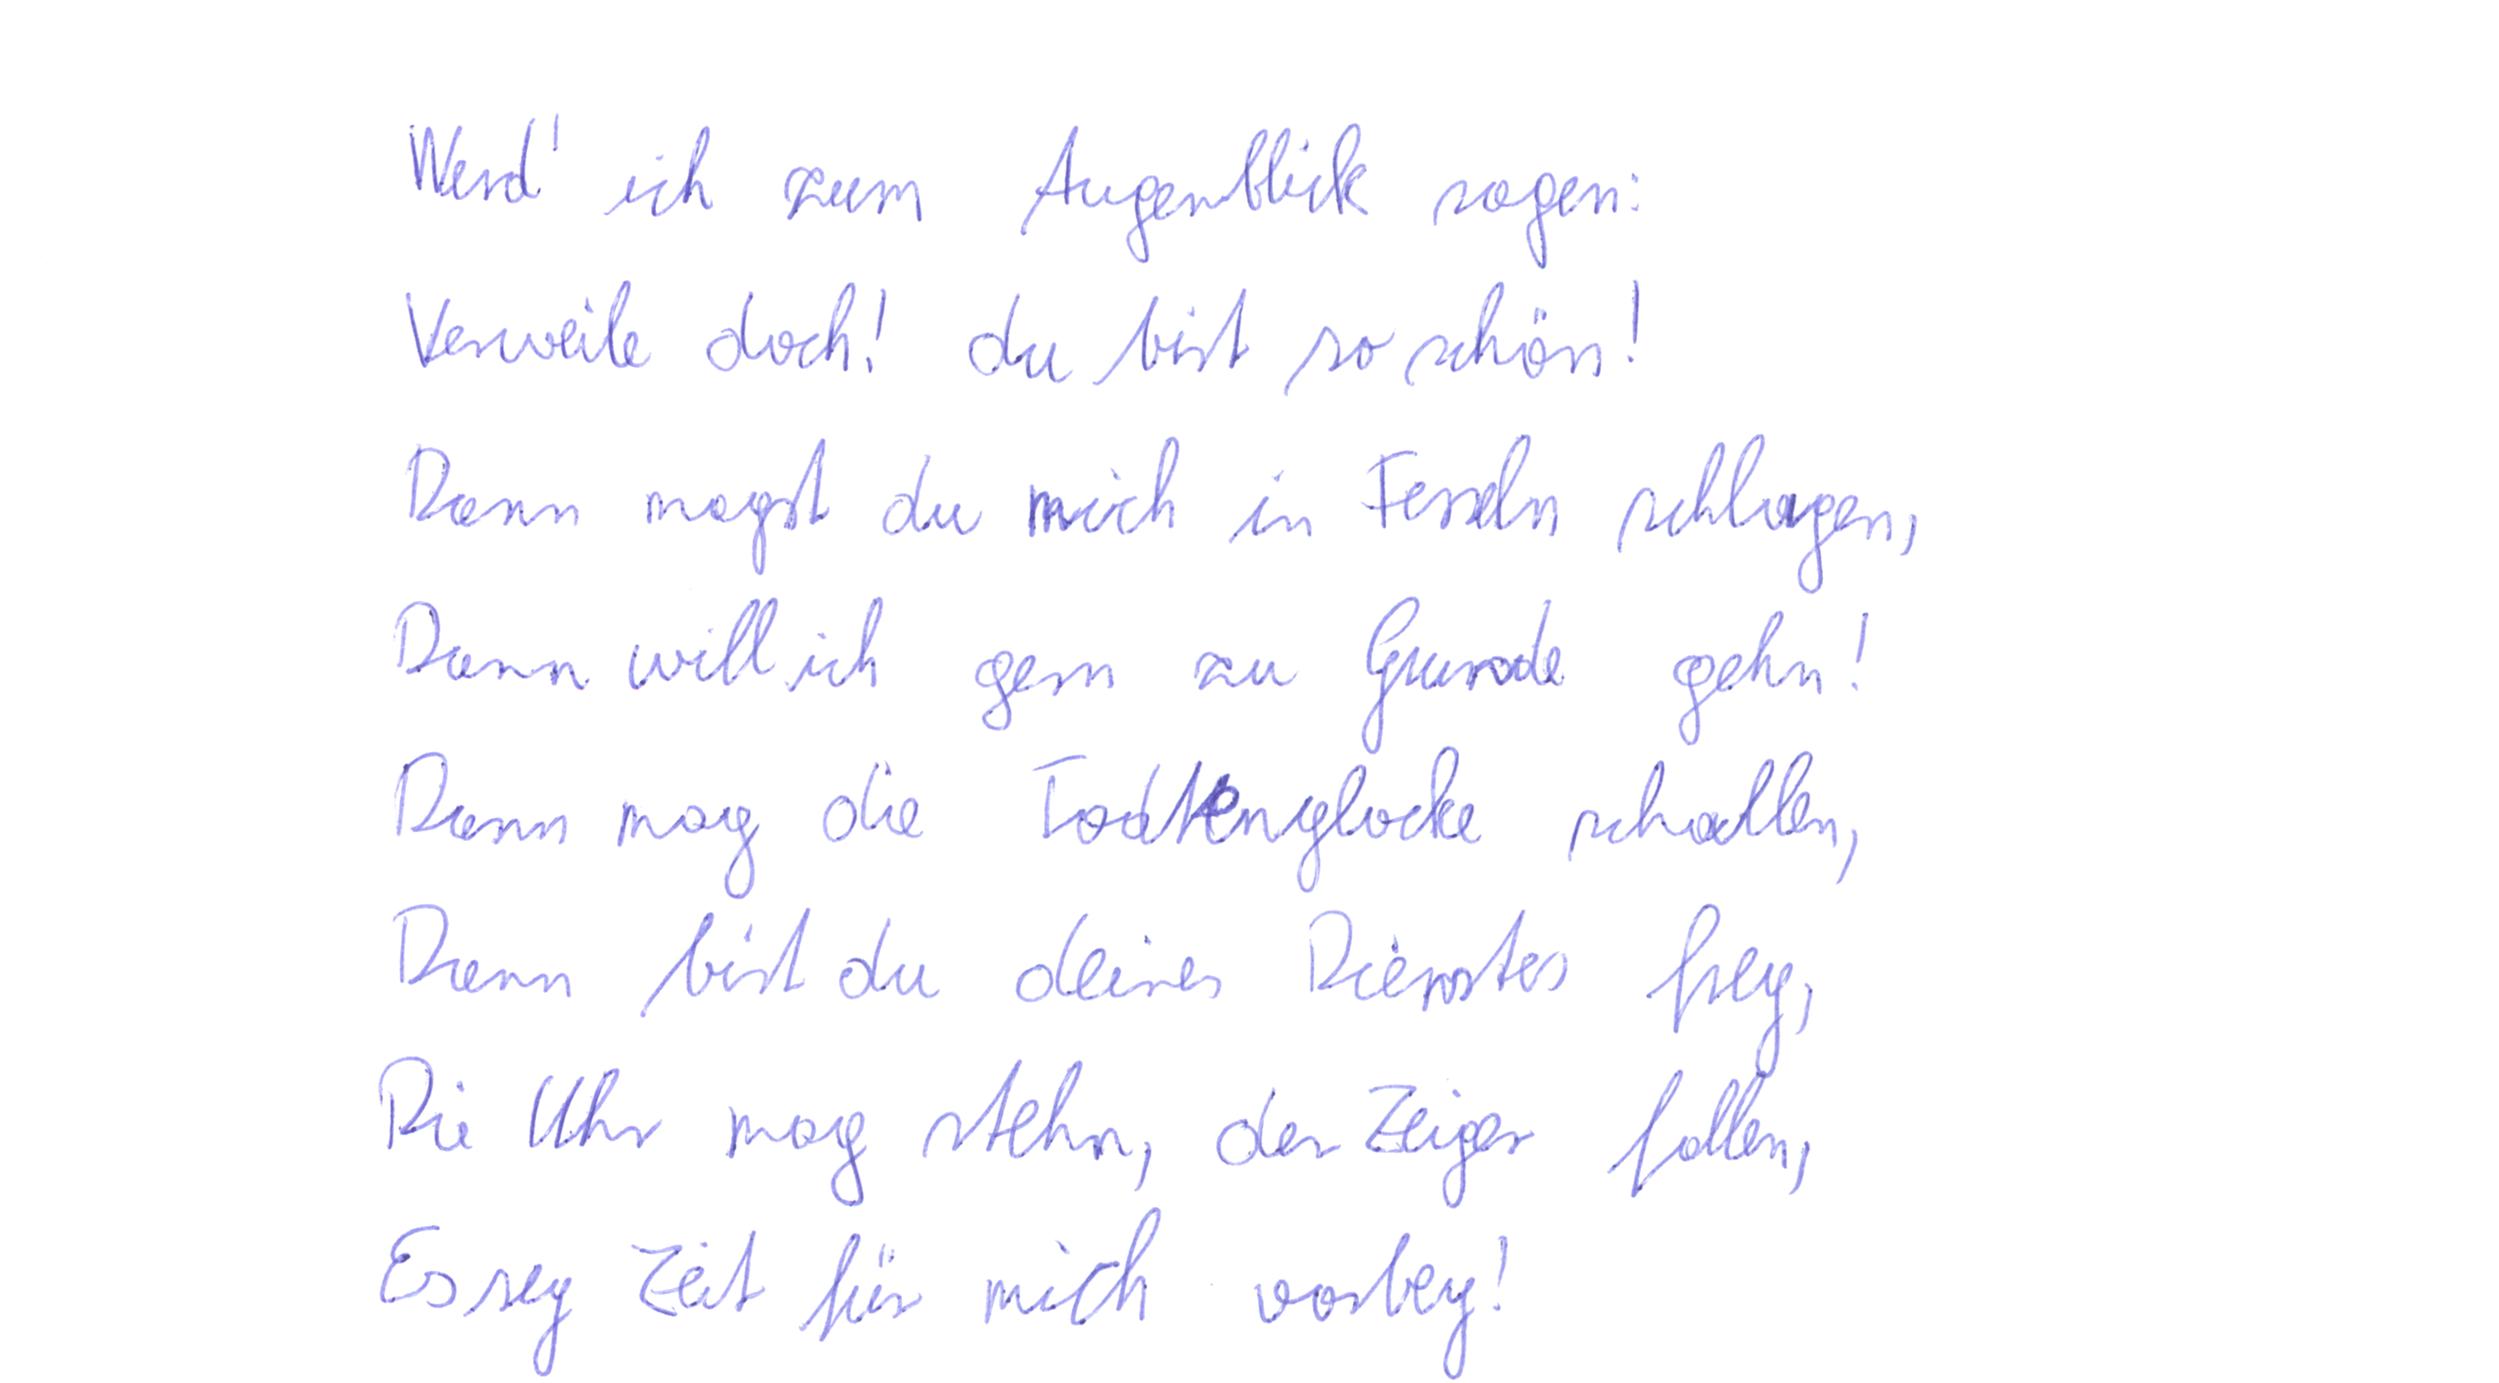 Werd' ich zum Augenblick sagen:
Verweile doch! du bist so schön!
Dann magst du mich in Fesseln schlagen,
Dann will ich gern zu Grunde gehn!
Dann mag die Todtenglocke schallen,
Dann bist du deines Dienstes frey,
Die Uhr mag stehn, der Zeiger fallen,
Es sey Zeit für mich vorbey!